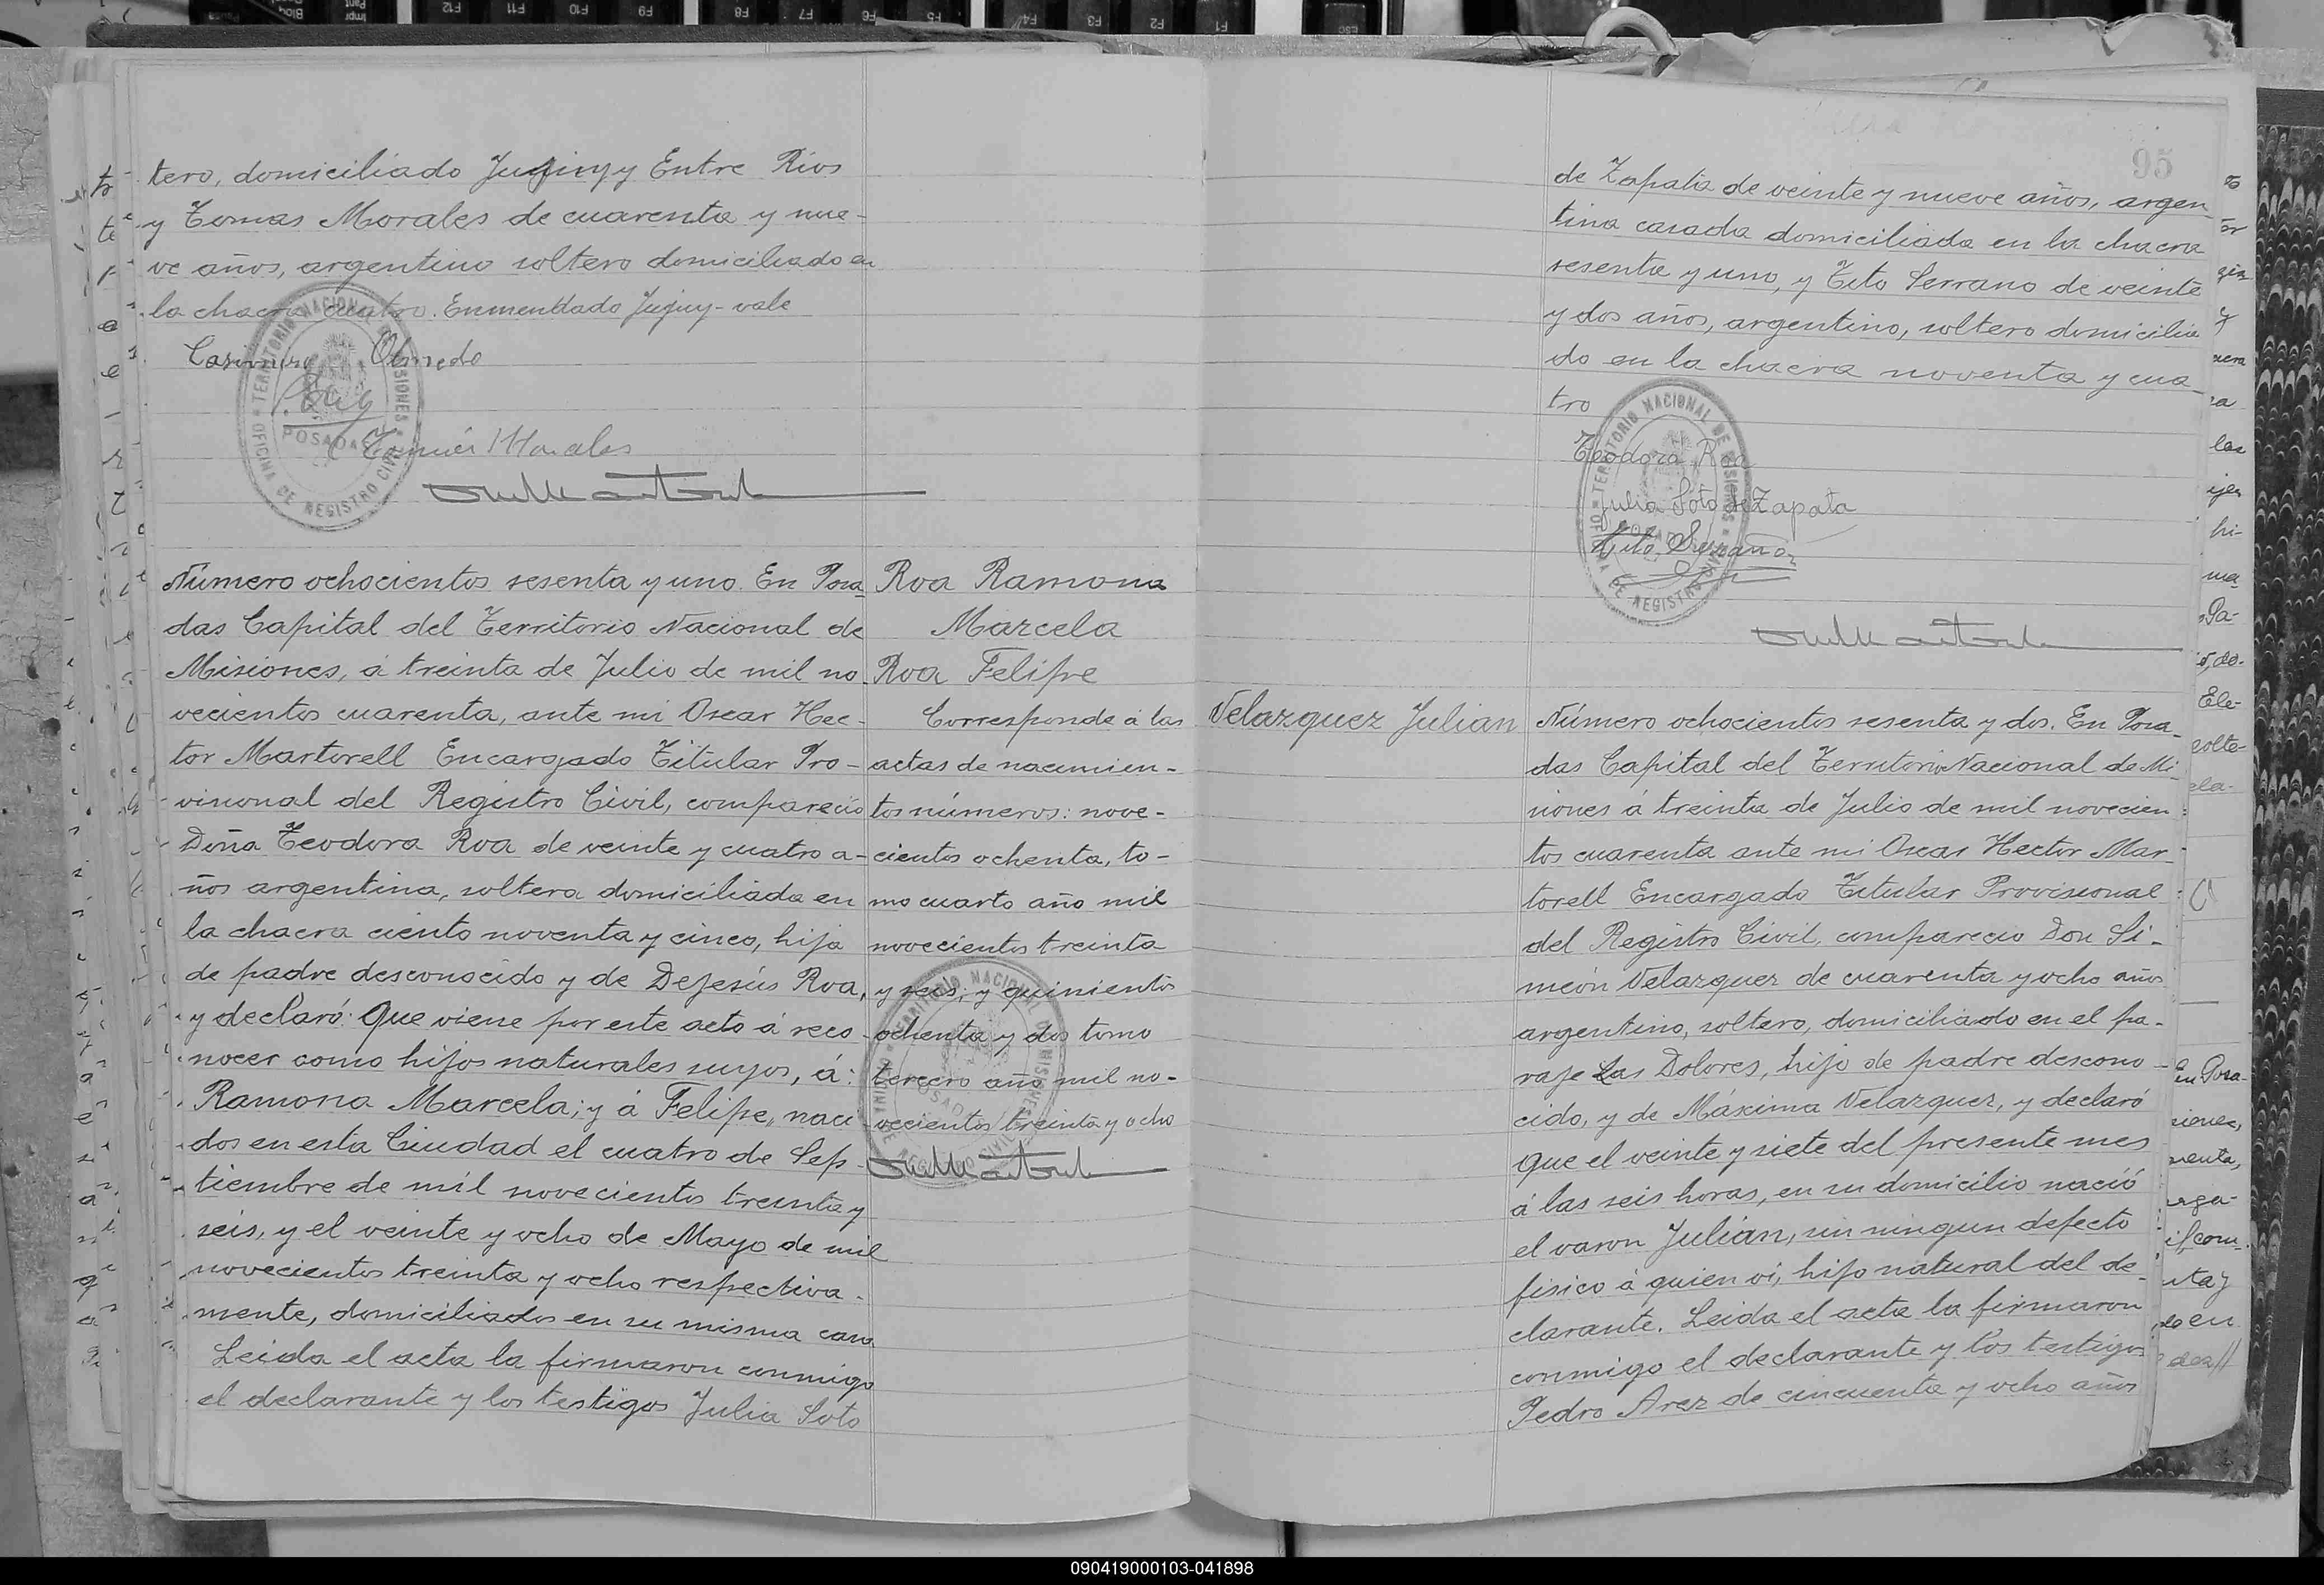 tero, domiciliado Jujuy y Entre Rios
y Tomas Morales de cuarenta y nue-
ve años, argentino soltero domiciliado en
la chacra cuatro. Enmendado Jujuy-vale
Casimiro Olmedo
Morales
TERRITORIO NACIONAL DE MISIONES
OFICINA DE REGISTRO CIVIL
POSADAS
Número ochocientos sesenta y uno. En Posa-
das Capital del Territorio Nacional de
Misiones, á treinta de Julio de mil no-
vecientos cuarenta, ante mi Oscar Hec-
tor Martorell Encargado Titular Pro-
visional del Registro Civil, compareció
Doña Teodora Roa de veinte y cuatro a-
ños argentina, soltera domiciliada en
la chacra ciento noventa y cinco, hija
de padre desconocido y de Dejesús Roa,
y declaró: Que viene por este acto á reco-
nocer como hijos naturales suyos, á:
Ramona Marcela; y á Felipe, naci-
dos en esta Ciudad el cuatro de Sep-
tiembre de mil novecientos treinta y
seis, y el veinte y ocho de Mayo de mil
novecientos treinta y ocho respectiva-
mente, domiciliados en su misma casa
Leida el acta la firmaron conmigo
el declarante y los testigos Julia Soto
Roa Ramona
Marcela
Roa Felipe
Corresponde á las
actas de nacimien-
tos números: nove-
cientos ochenta, to-
mo cuarto año mil
novecientos treinta
y seis; y quinientos
ochenta y dos tomo
tercero año mil no-
vecientos treinta y ocho
95
de Zapata de veinte y nueve años, argen-
tina casada domiciliada en la chacra
sesenta y uno, y Tito Serrano de veinte
y dos años, argentino, soltero domicilia
do en la chacra noventa y cua-
tro
Teodora Roa
Julia Soto de Zapata
Tito Serrano
TERRITORIO NACIONAL DE MISIONES
Velazquez Julian
Número ochocientos sesenta y dos. En Posa-
das Capital del Territorio Nacional de Mi-
siones á treinta de Julio de mil novecien
tos cuarenta ante mi Oscar Hector Mar-
torell Encargado Titular Provisional
del Registro Civil, compareció Don Si-
meón Velazquez de cuarenta y ocho años
argentino, soltero, domiciliado en el pa-
raje Las Dolores, hijo de padre descono-
cido, y de Máxima Velazquez, y declaró
Que el veinte y siete del presente mes
á las seis horas, en su domicilio nació
el varon Julián, sin ningun defecto
fisico á quien vi, hijo natural del de-
clarante. Leida el acta la firmaron
conmigo el declarante y los testigos
Pedro Arez de cincuenta y ocho años
090419000103-041898